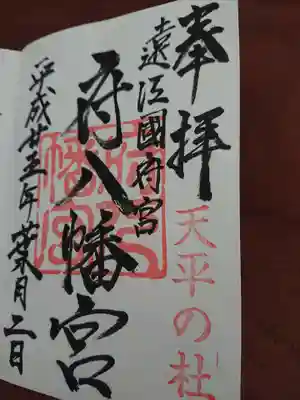 奉拝
天平の杜
遠江國府宮
府八幡宮
府八
幡宮
平成廿五年 月二日